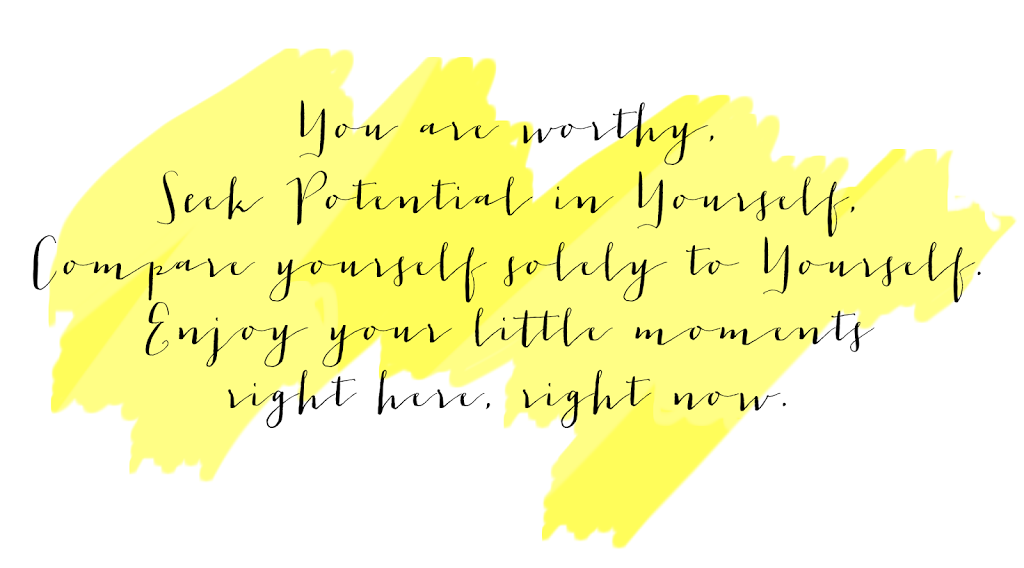 You are worthy,
Seek Potential in Yourself,
Compare yourself solely to Yourself.
Enjoy your little moments
right here, right now.